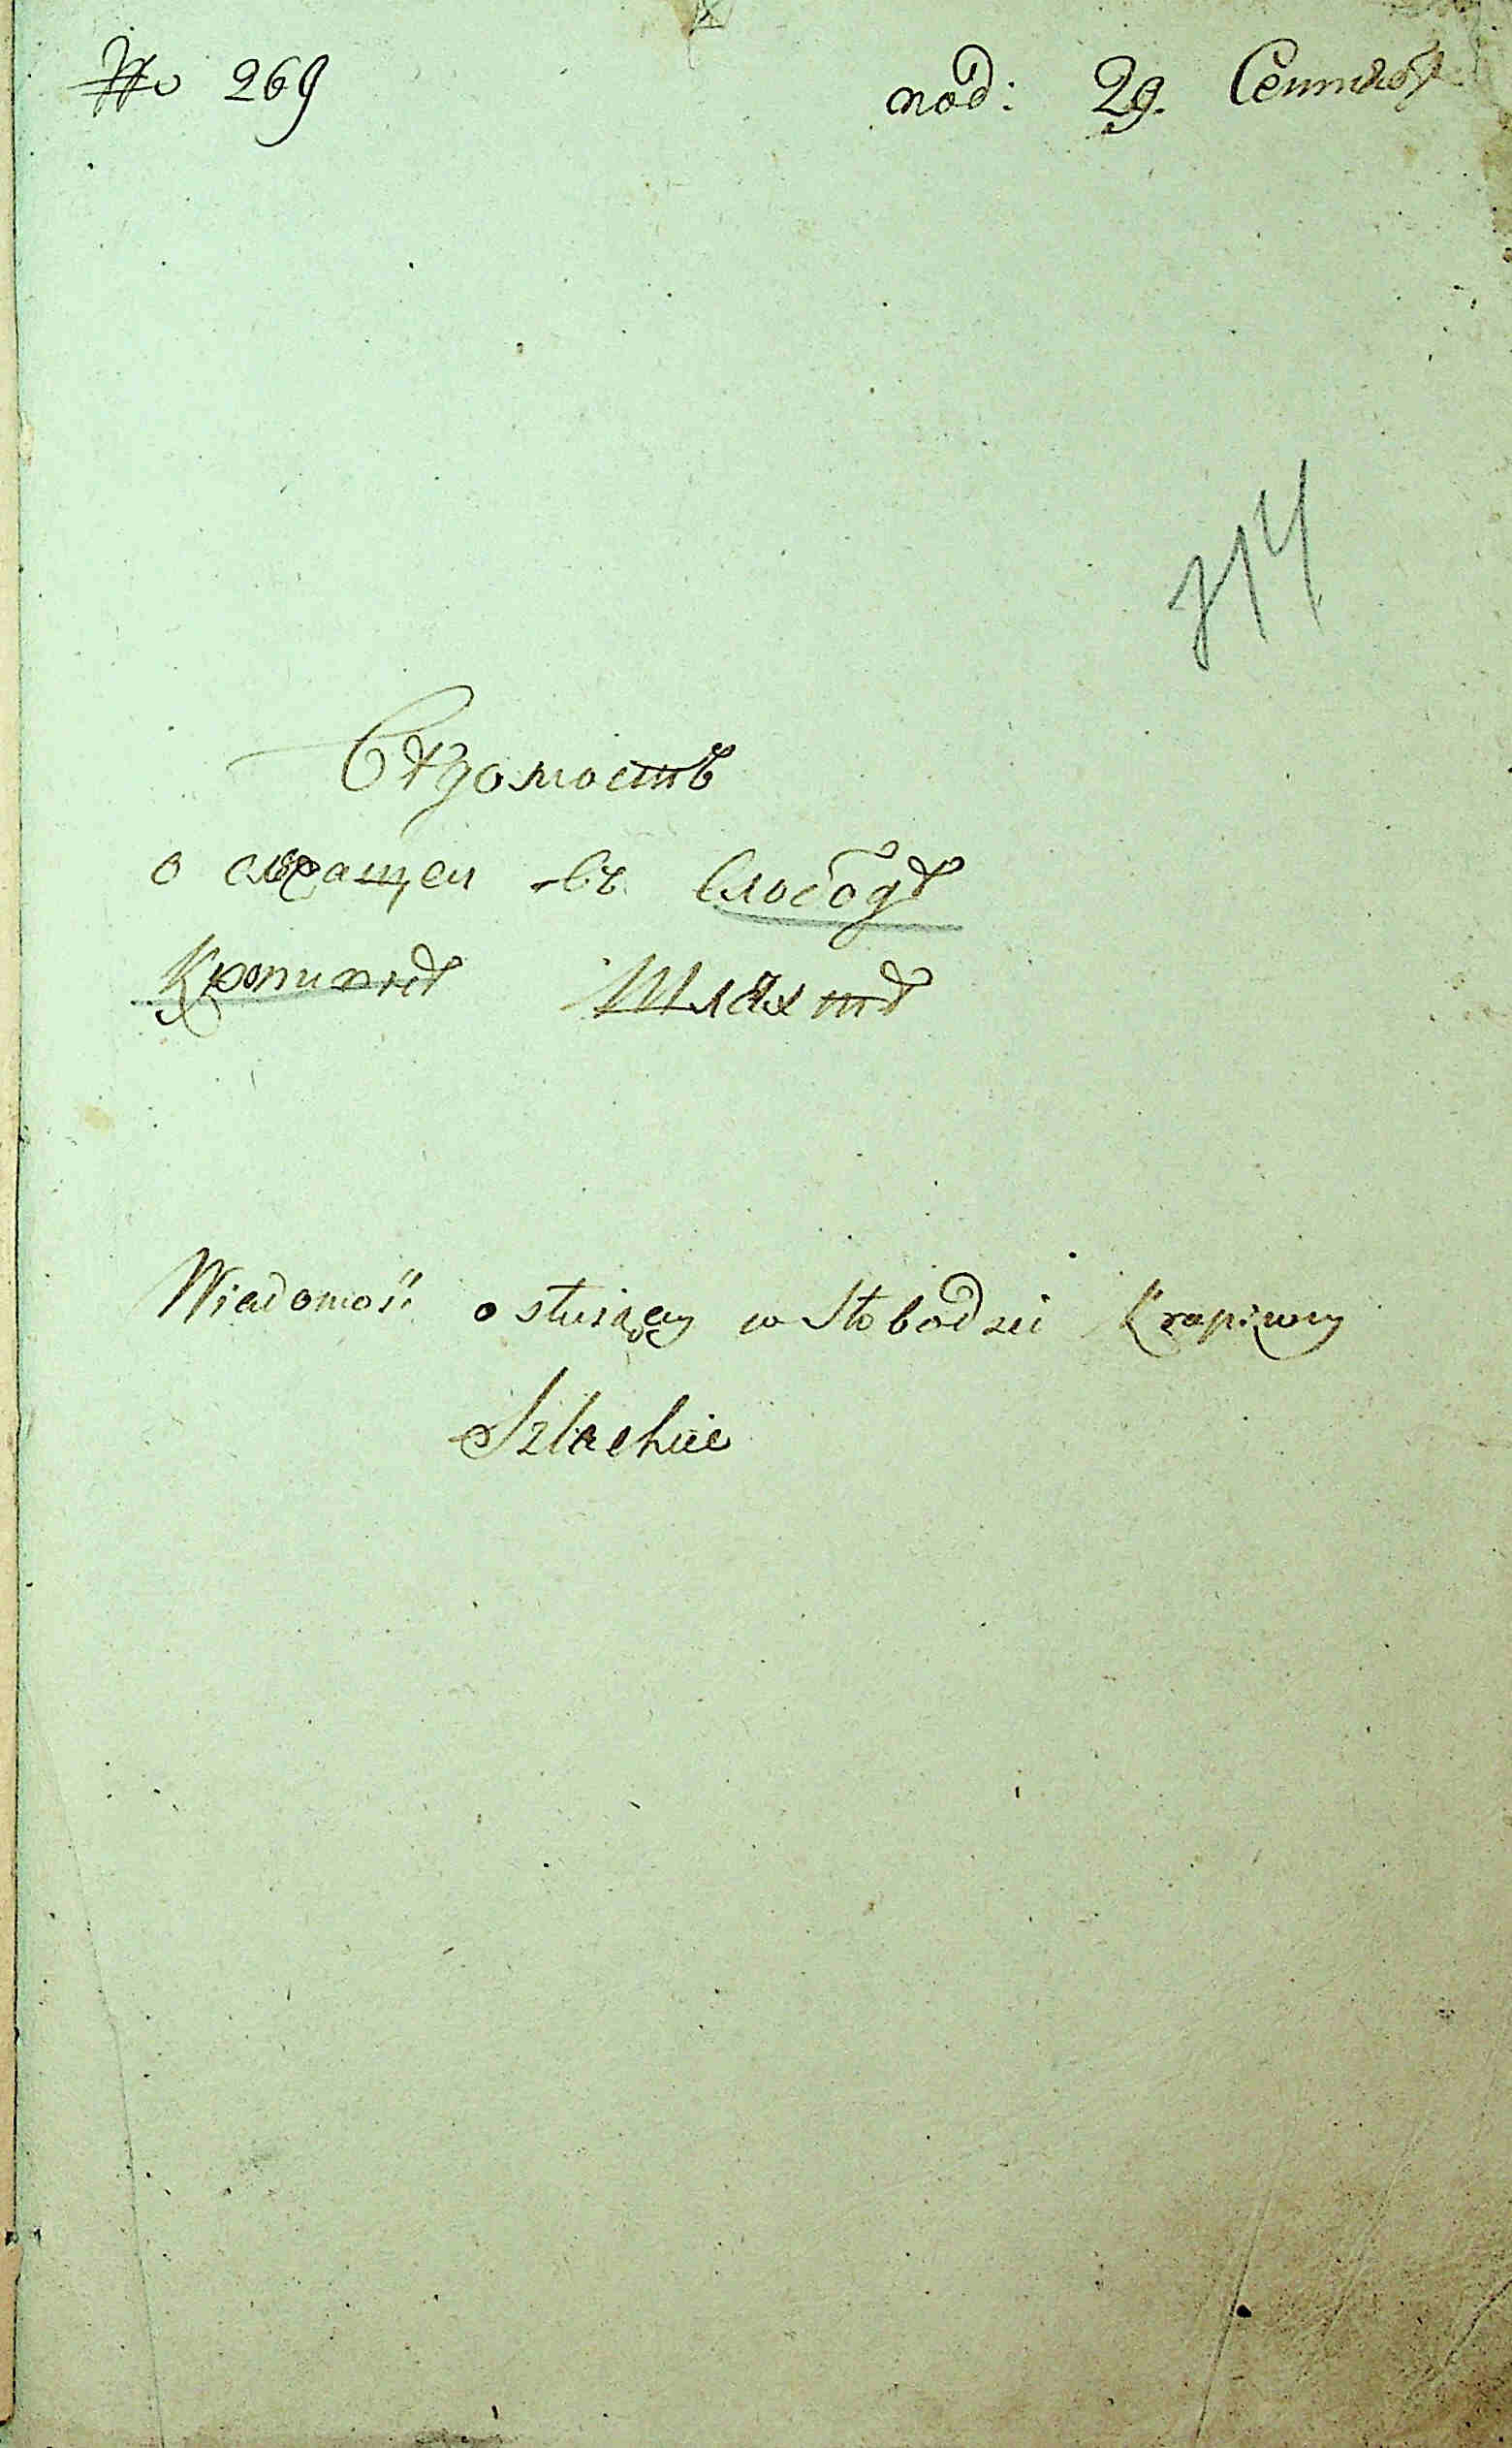 No 269
под: 29. Сентября
314
Вѣдомость
о служащей въ Слободѣ
Кропивнѣ Шляхтѣ
Wiadomość o służący w Słobodzie Krapiwny
Szlachcie